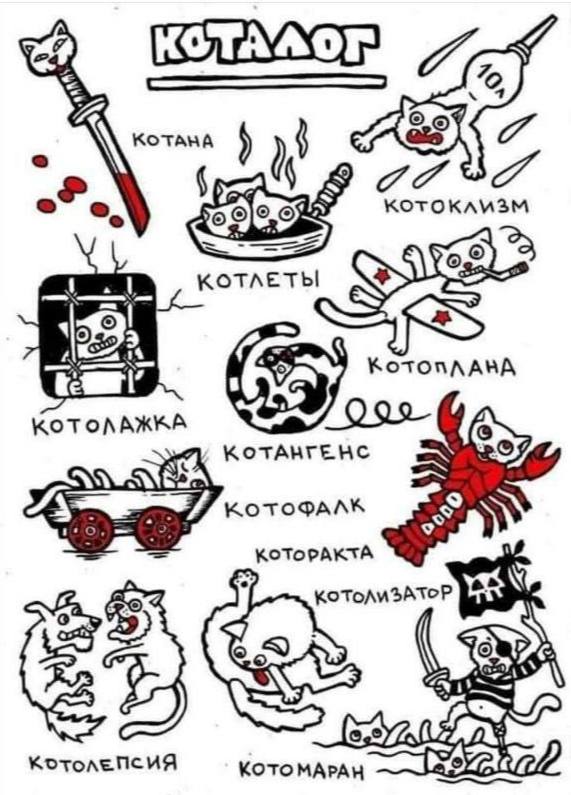 КОТАЛОГ
10л
КОТАНА
КОТОКЛИЗМ
КОТЛЕТЫ
КОТОПЛАНА
КОТОЛАЖКА
КОТАНГЕНС
КОТОФАЛК
КОТОРАКТА
КОТОЛИЗАТОР
КОТОЛЕПСИЯ
КОТОМАРАН